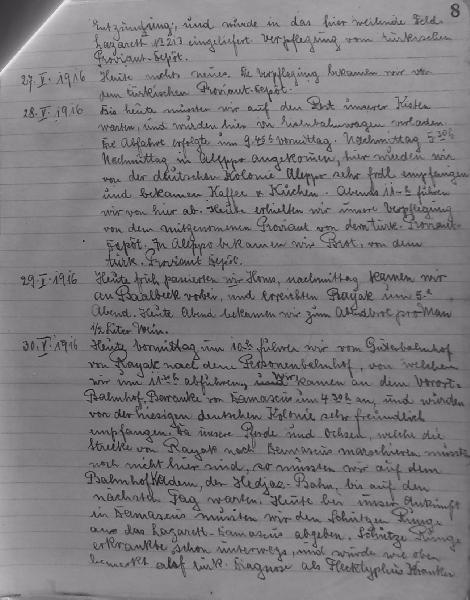 8
Entzündung, und wurde in das hier weilende Feld-
Lazarett No 213 eingeliefert. Verpflegung vom türkischen
Proviant-Depôt.
27.V.1916 Heute nichts neues. Die Verpflegung bekamen wir von
dem türkischen Proviant-Depôt.
28.V.1916 Bis heute mussten wir auf den Rest unserer Kisten
warten, und wurden hier in Eisenbahnwagen verladen.
Die Abfahrt erfolgte um 9.45 h vormittag. Nachmittag 5 30 h
Nachmittag in Aleppo angekommen, hier wurden wir
von der deutschen Kolonie Aleppo sehr froh empfangen
und bekamen Kaffee & Kuchen. Abends 11 h fuhren
wir von hier ab. Heute erhielten wir unsere Verpflegung
von dem mitgenommenen Proviant von dem türk. Proviant-
Depôt. In Aleppo bekamen wir Brot, von dem
türk. Proviant Depôt.
29.V.1916 Heute früh passierten wir Homs, nachmittag kamen wir
an Baalbeck vorbei, und erreichten Rayak um 5 h
Abend. Heute Abend bekamen wir zum Abendbrot pro Mann
1/2 Liter Wein.
30.V.1916 Heute Vormittag um 10 h fuhren wir vom Güterbahnhof
von Rayak nach dem Personenbahnhof, von welchem
wir um 11 h abfuhren, und wir kamen an dem Vorort-
Bahnhof, Baramke von Damascus um 4 30 h an, und wurden
von der hiesigen deutschen Kolonie sehr freundlich
empfangen. Da unsere Pferde und Ochsen, welche die
Strecke von Rayak nach Damascus marschieren mussten
noch nicht hier sind, so mussten wir auf dem
Bahnhof Kadem, der Hedjaz-Bahn, bis auf den
nächsten Tag warten. Heute bei unser Ankunft
in Damascus mussten wir den Schützen Runge
aus das Lazarett-Damascus abgeben. Schütze Runge
erkrankte schon unterwegs, und wurde wie oben
bemerkt als türk. Diagnose als Flecktyphus Kranker